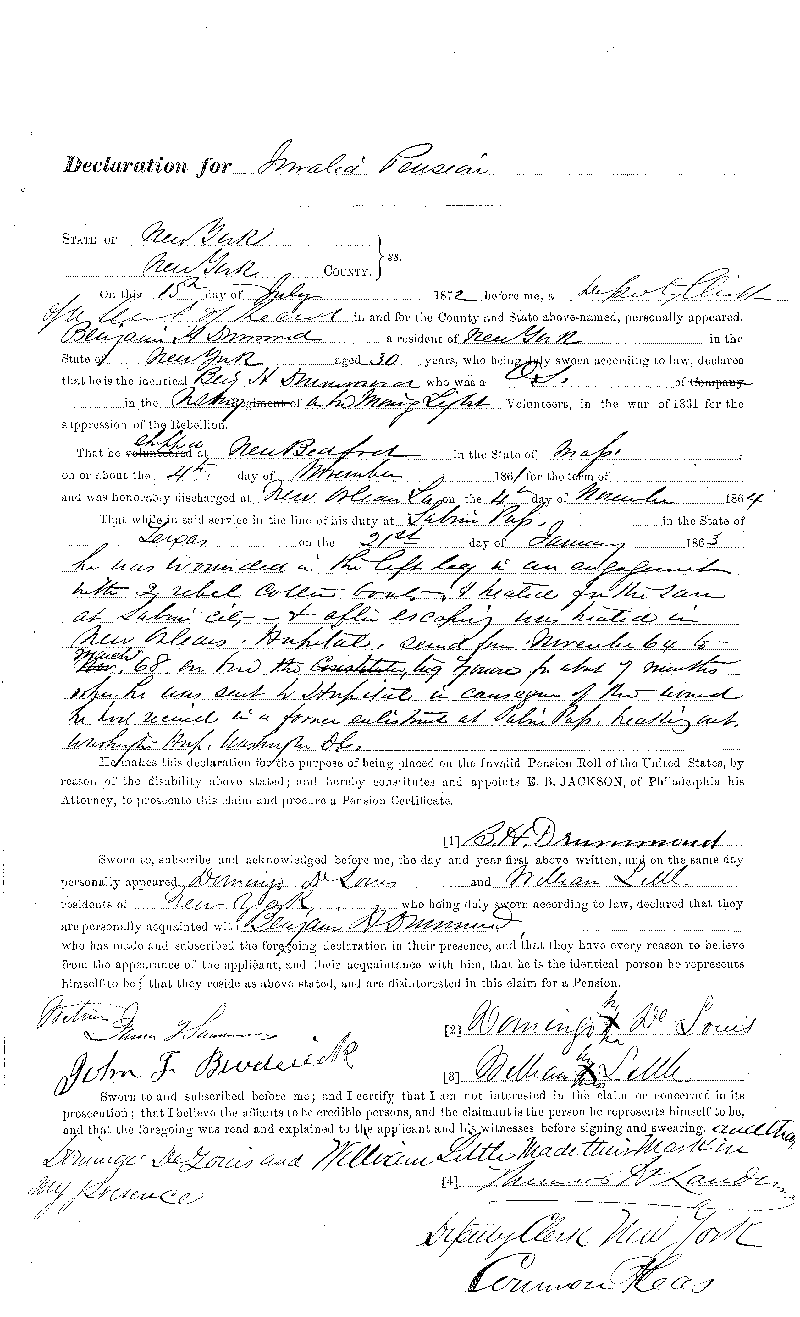 Declaration for Invalid Pension
STATE OF New York
New York COUNTY. } ss.
On this 15th day of July 1872 before me, a Deputy Clerk
of the Court of in and for the County and State above-named, personally appeared,
Benjamin H Drummond a resident of New York in the
State of New York aged 30 years, who being duly sworn according to law, declares
that he is the identical Benj H Drummond who was a O.S. of Company
in the Regiment of Morning Light Volunteers, in the war of 1861 for the
suppression of the Rebellion.
That he volunteered shipped at New Bedford in the State of Mass.
on or about the 4th day of November 1861 for the term of
and was honorably discharged at New Orleans La on the 4th day of November 1864
That while in said service in the line of his duty at Sabin Pass, in the State of
Texas on the 21st day of January 1863
he was wounded in the left leg in an engagement
with 2 rebel Cotton boats, & treated for the same
at Sabin city & after escaping was treated in
New Orleans Hospitals, served from November 64 to
March 68 on the Constitution, for abt 7 months
when he was sent to Hospital in consequence of the wound
he had received in a former enlistment at Sabin Pass.
Washington Hosp. Washington D.C.
He makes this declaration for the purpose of being placed on the Invalid Pension Roll of the United States, by
reason of the disability above stated; and hereby constitutes and appoints E. B. JACKSON, of Philadelphia his
Attorney, to prosecute this claim and procure a Pension Certificate.
[1] B. H. Drummond
Sworn to, subscribe and acknowledged before me, the day and year first above written, and on the same day
personally appeared Domingo De Louis and William Littl
residents of New York who being duly sworn according to law, declared that they
are personally acquainted with Benjamin H Drummond,
who has made and subscribed the foregoing declaration in their presence, and that they have every reason to believe
from the appearance of the applicant, and their acquaintance with him, that he is the identical person he represents
himself to be; that they reside as above stated, and are disinterested in this claim for a Pension.
[2] Domingo his X De Louis
John F. Broderick
[3] William his X Little
Sworn to and subscribed before me; and I certify that I am not interested in the claim or concerned in its
prosecution; that I believe the affiants to be credible persons, and the claimant is the person he represents himself to be,
and that the foregoing was read and explained to the applicant and his witnesses before signing and swearing. and that
Domingo De Louis and William Little Made their Mark in
my presence
[4] Thomas
Deputy Clerk New York
Common Pleas